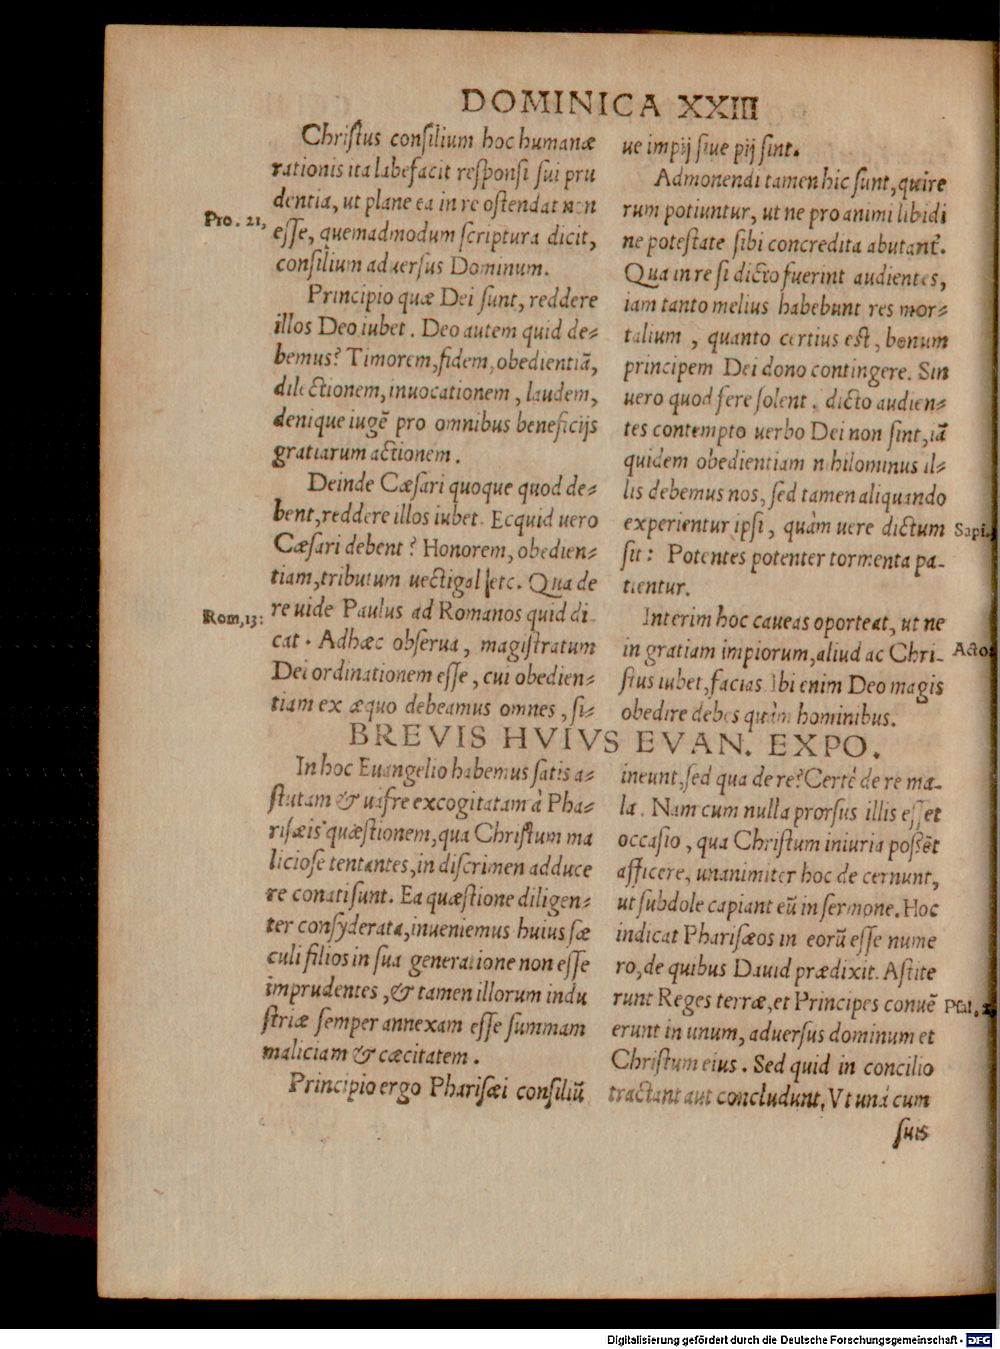 DOMINICA XXIII
Christus consilium hoc humanæ
rationis ita labefacit responsi sui pru
dentia, ut plane ea in re ostendat non
Pro. 21,
esse, quemadmodum scriptura dicit,
consilium aduersus Dominum.
Principio quæ Dei sunt, reddere
illos Deo iubet. Deo autem quid de-
bemus? Timorem, fidem, obedientiã,
dilectionem, inuocationem, laudem,
denique iugẽ pro omnibus beneficijs
gratiarum actionem.
Deinde Cæsari quoque quod de-
bent, reddere illos iubet. Ecquid uero
Cæsari debent? Honorem, obedien-
tiam, tributum uectigal etc. Qua de
Rom, 13:
re uide Paulus ad Romanos quid di
cat. Adhæc obserua, magistratum
Dei ordinationem esse, cui obedien-
tiam ex æquo debeamus omnes, si-
ue impij siue pij sint.
Admonendi tamen hic sunt, qui re
rum potiuntur, ut ne pro animi libidi
ne potestate sibi concredita abutant̃.
Qua in re si dicto fuerint audientes,
iam tanto melius habebunt res mor-
talium, quanto certius est, bonum
principem Dei dono contingere. Sin
uero quod fere solent, dicto audien-
tes contempto uerbo Dei non sint, iã
quidem obedientiam nihilominus il-
lis debemus nos, sed tamen aliquando
experientur ipsi, quàm uere dictum
Sapi.
sit: Potentes potenter tormenta pa-
tientur.
Interim hoc caueas oporteat, ut ne
in gratiam impiorum, aliud ac Chri-
Acto
stus iubet, facias. Ibi enim Deo magis
obedire debes quàm hominibus.
BREVIS HVIVS EVAN. EXPO.
In hoc Euangelio habemus satis a-
stutam & uafre excogitatam à Pha-
risæis quæstionem, qua Christum ma
liciose tentantes, in discrimen adduce
re conati sunt. Ea quæstione diligen-
ter consyderata, inueniemus huius sæ
culi filios in sua generatione non esse
imprudentes, & tamen illorum indu
striæ semper annexam esse summam
maliciam & cæcitatem.
Principio ergo Pharisæi consiliũ
ineunt, sed qua de re? Certè de re ma-
la. Nam cum nulla prorsus illis esset
occasio, qua Christum iniuria possẽt
afficere, unanimiter hoc de cernunt,
ut subdole capiant eũ in sermone. Hoc
indicat Pharisæos in eorũ esse nume
ro, de quibus Dauid prædixit. Astite
runt Reges terræ, et Principes conuẽ
Psal. 2,
erunt in unum, aduersus dominum et
Christum eius. Sed quid in concilio
tractant aut concludunt, Vt unà cum
suis
Digitalisierung gefördert durch die Deutsche Forschungsgemeinschaft - DFG